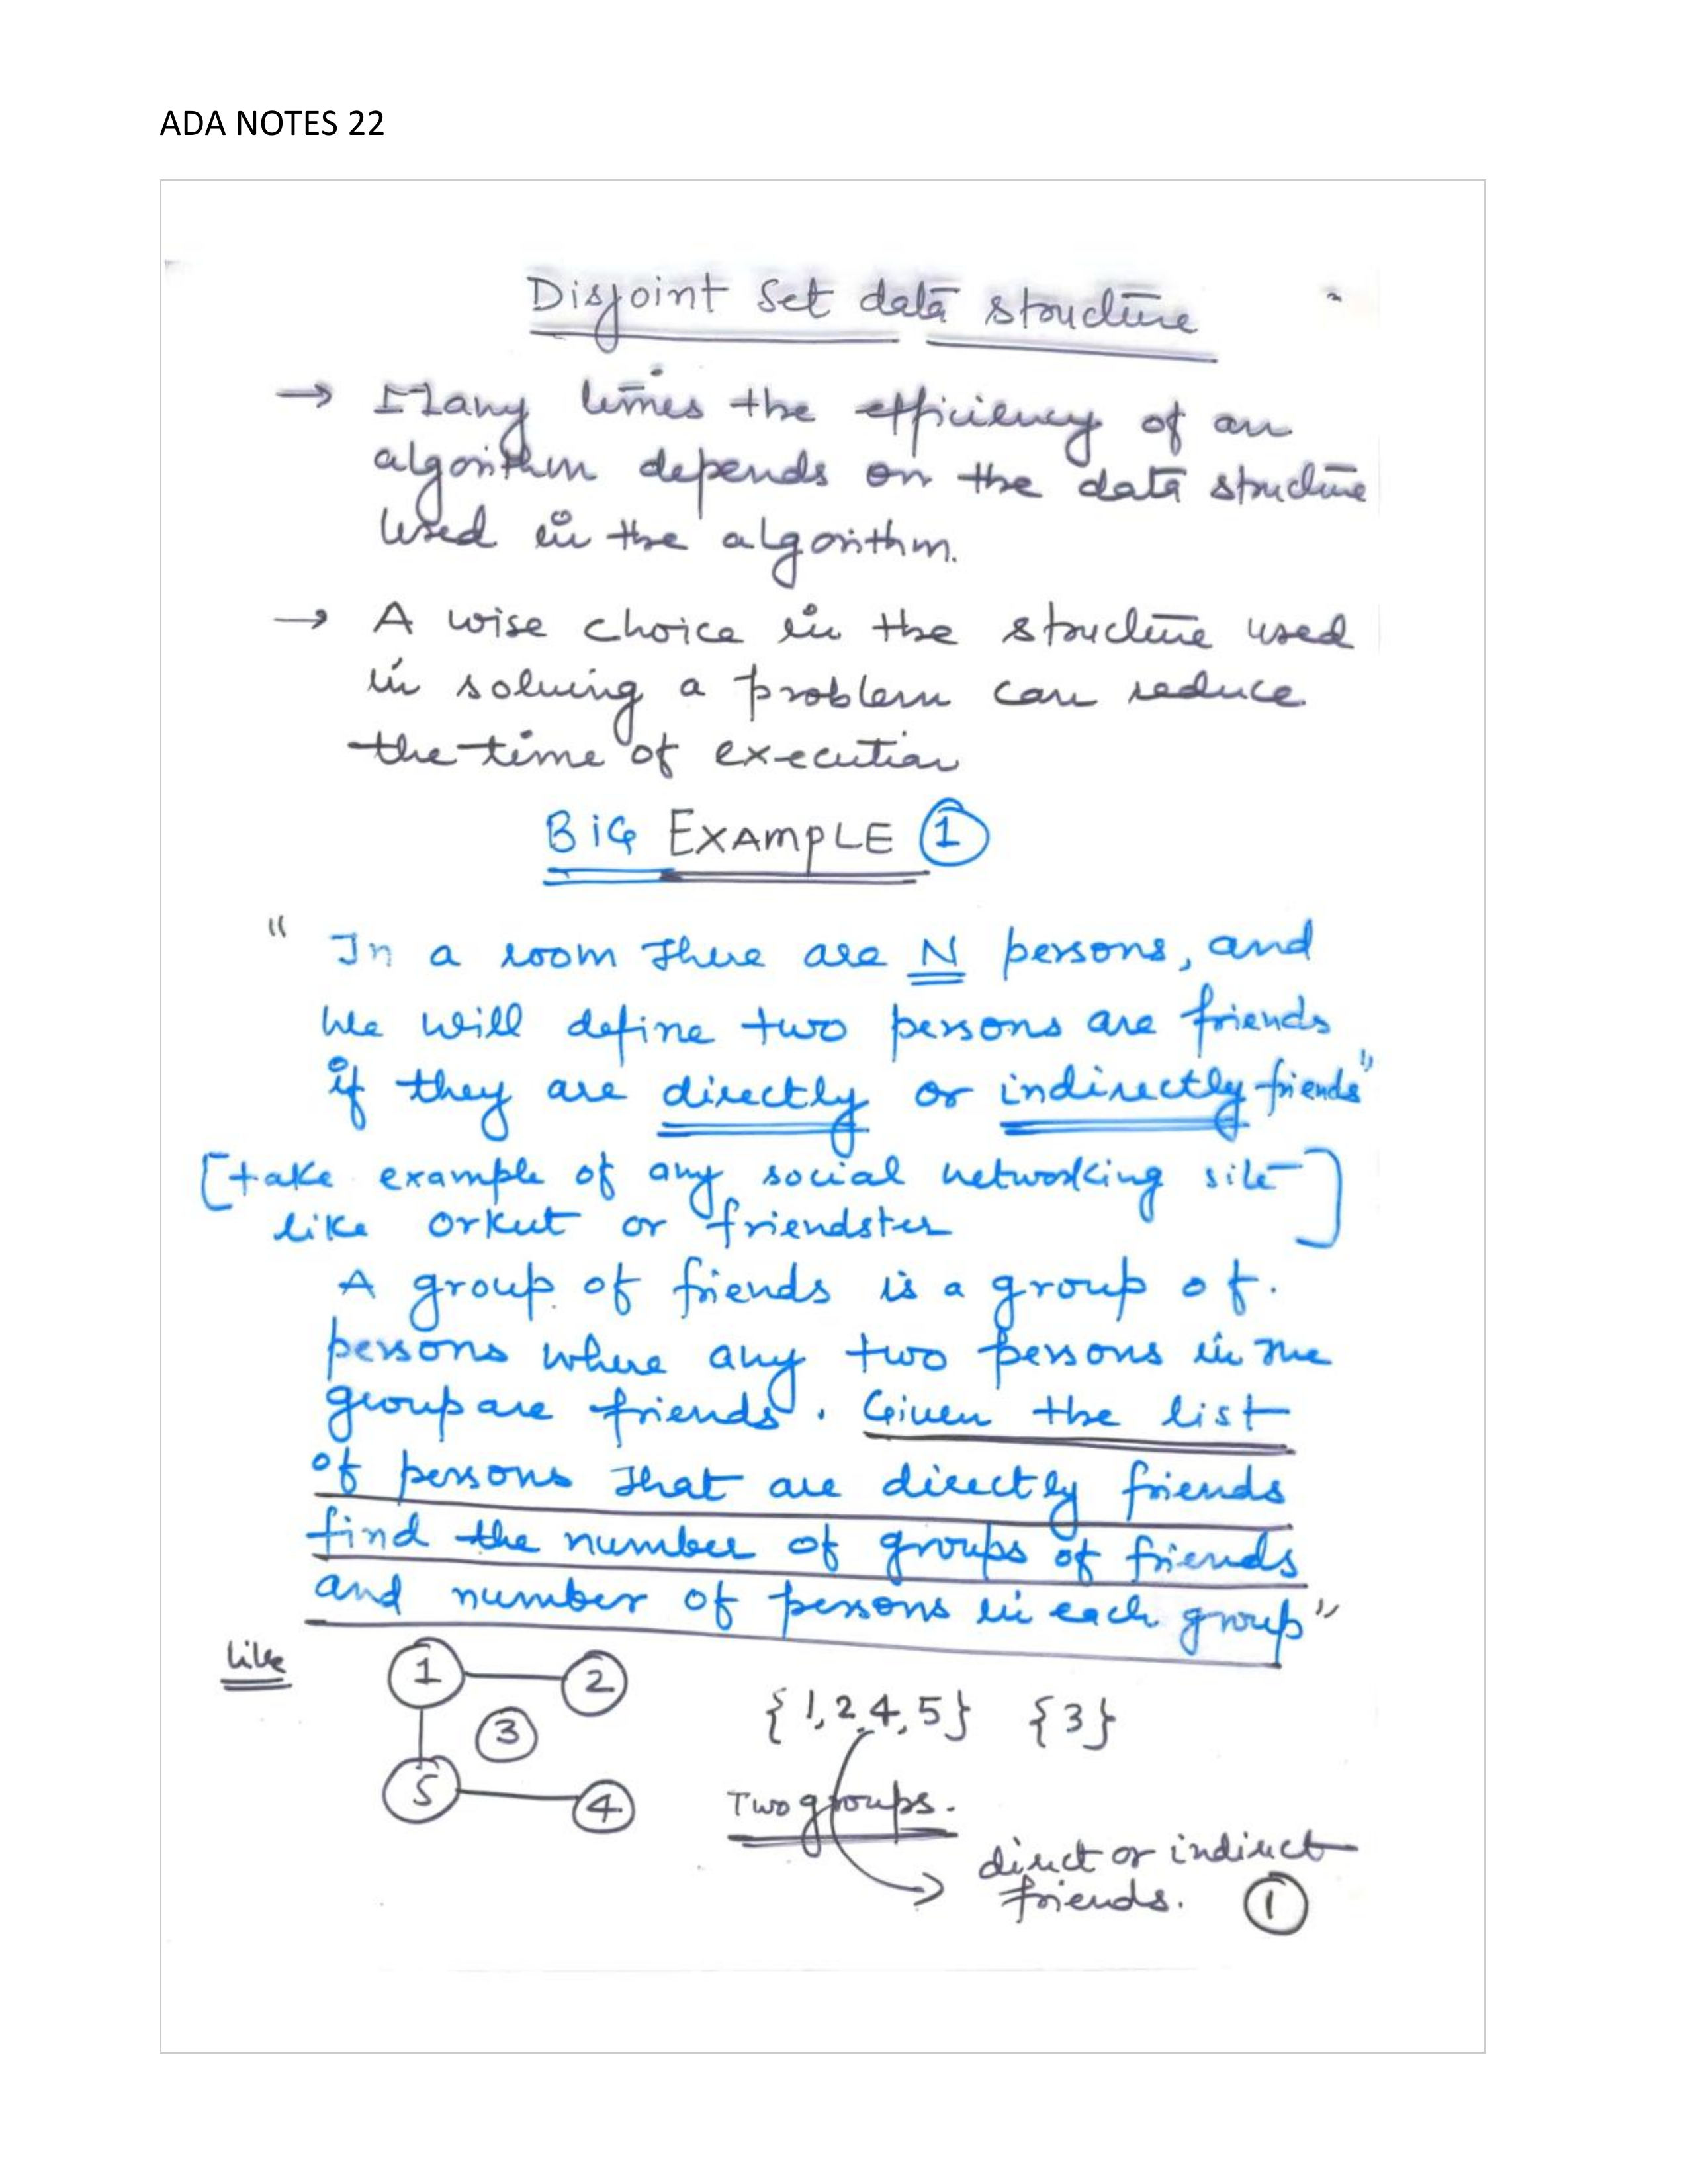 ADA NOTES 22
Disjoint Set data structure
→ Many times the efficiency of an
algorithm depends on the data structure
used in the algorithm.
→ A wise choice in the structure used
in solving a problem can reduce
the time of execution
BiG EXAMPLE ①
" In a room there are N persons, and
we will define two persons are friends
if they are directly or indirectly friends"
[take example of any social networking site]
like orkut or friendster
A group of friends is a group of.
persons where any two persons in the
group are friends. Given the list
of persons that are directly friends
find the number of groups of friends
and number of persons in each group"
like
1 2
3
5 4
{1,2,4,5} {3}
Two groups.
direct or indirect
friends. ①